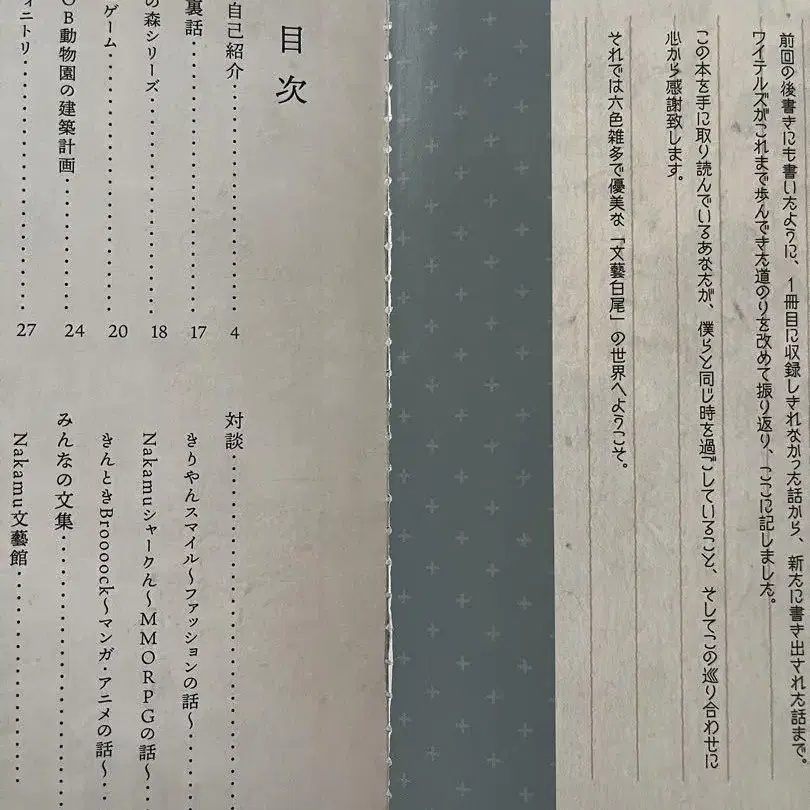 前回の後書きにも書いたように、1冊目に収録しきれなかった話から、新たに書き出された話まで。
ワイテルズがこれまで歩んできた道のりを改めて振り返り、ここに記しました。
この本を手に取り読んでいるあなたが、僕らと同じ時を過ごしていること、そしてこの巡り合わせに
心から感謝致します。
それでは六色雑多で優美な「文藝白尾」の世界へようこそ。
目次
自己紹介 4
裏話 17
の森シリーズ 18
ゲーム 20
OB動物園の建築計画 24
ィニトリ 27
対談
きりやんスマイル〜ファッションの話〜
Nakamuシャークん〜MMORPGの話〜
きんときBroooock〜マンガ・アニメの話〜
みんなの文集
Nakamu文藝館